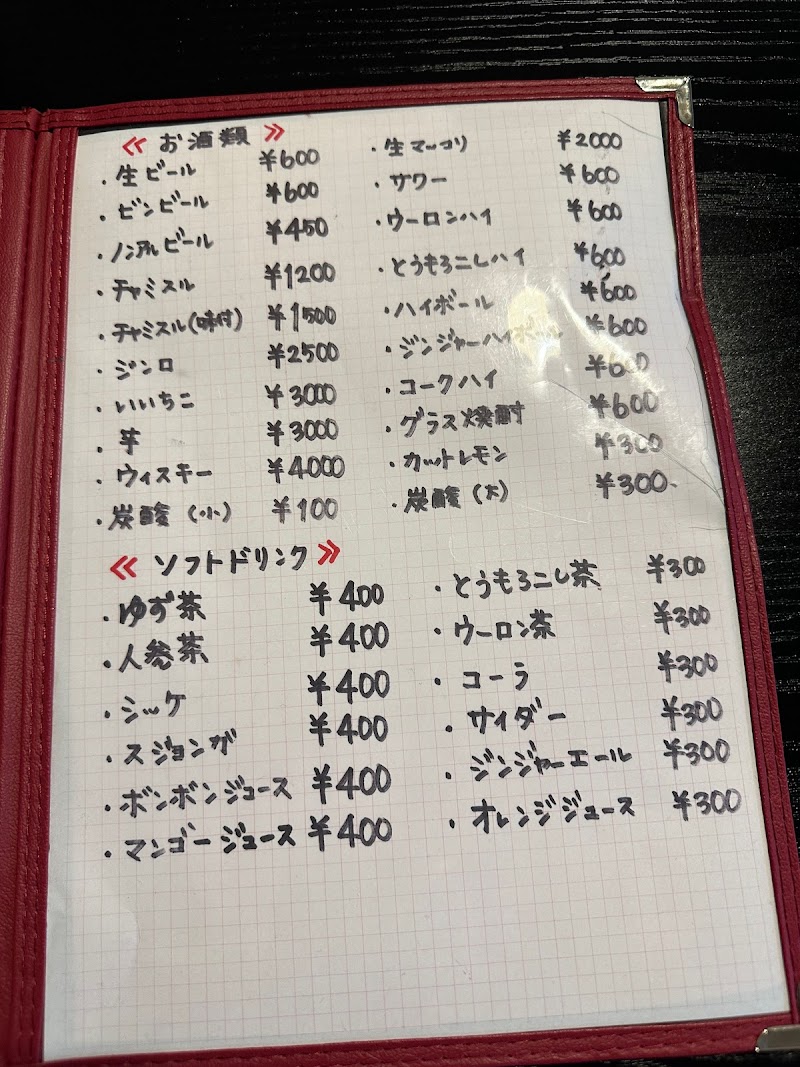 ≪ お酒類 ≫
・生ビール ¥600
・ビンビール ¥600
・ノンアルビール ¥450
・チャミスル ¥1200
・チャミスル(味付) ¥1500
・ジンロ ¥2500
・いいちこ ¥3000
・芋 ¥3000
・ウィスキー ¥4000
・炭酸 (小) ¥100
・生マッコリ ¥2000
・サワー ¥600
・ウーロンハイ ¥600
・とうもろこしハイ ¥600
・ハイボール ¥600
・ジンジャーハイボール ¥600
・コークハイ ¥600
・グラス焼酎 ¥600
・カットレモン ¥300
・炭酸 (大) ¥300
≪ ソフトドリンク ≫
・ゆず茶 ¥400
・人参茶 ¥400
・シッケ ¥400
・スジョンガ ¥400
・ボンボンジュース ¥400
・マンゴージュース ¥400
・とうもろこし茶 ¥300
・ウーロン茶 ¥300
・コーラ ¥300
・サイダー ¥300
・ジンジャーエール ¥300
・オレンジジュース ¥300